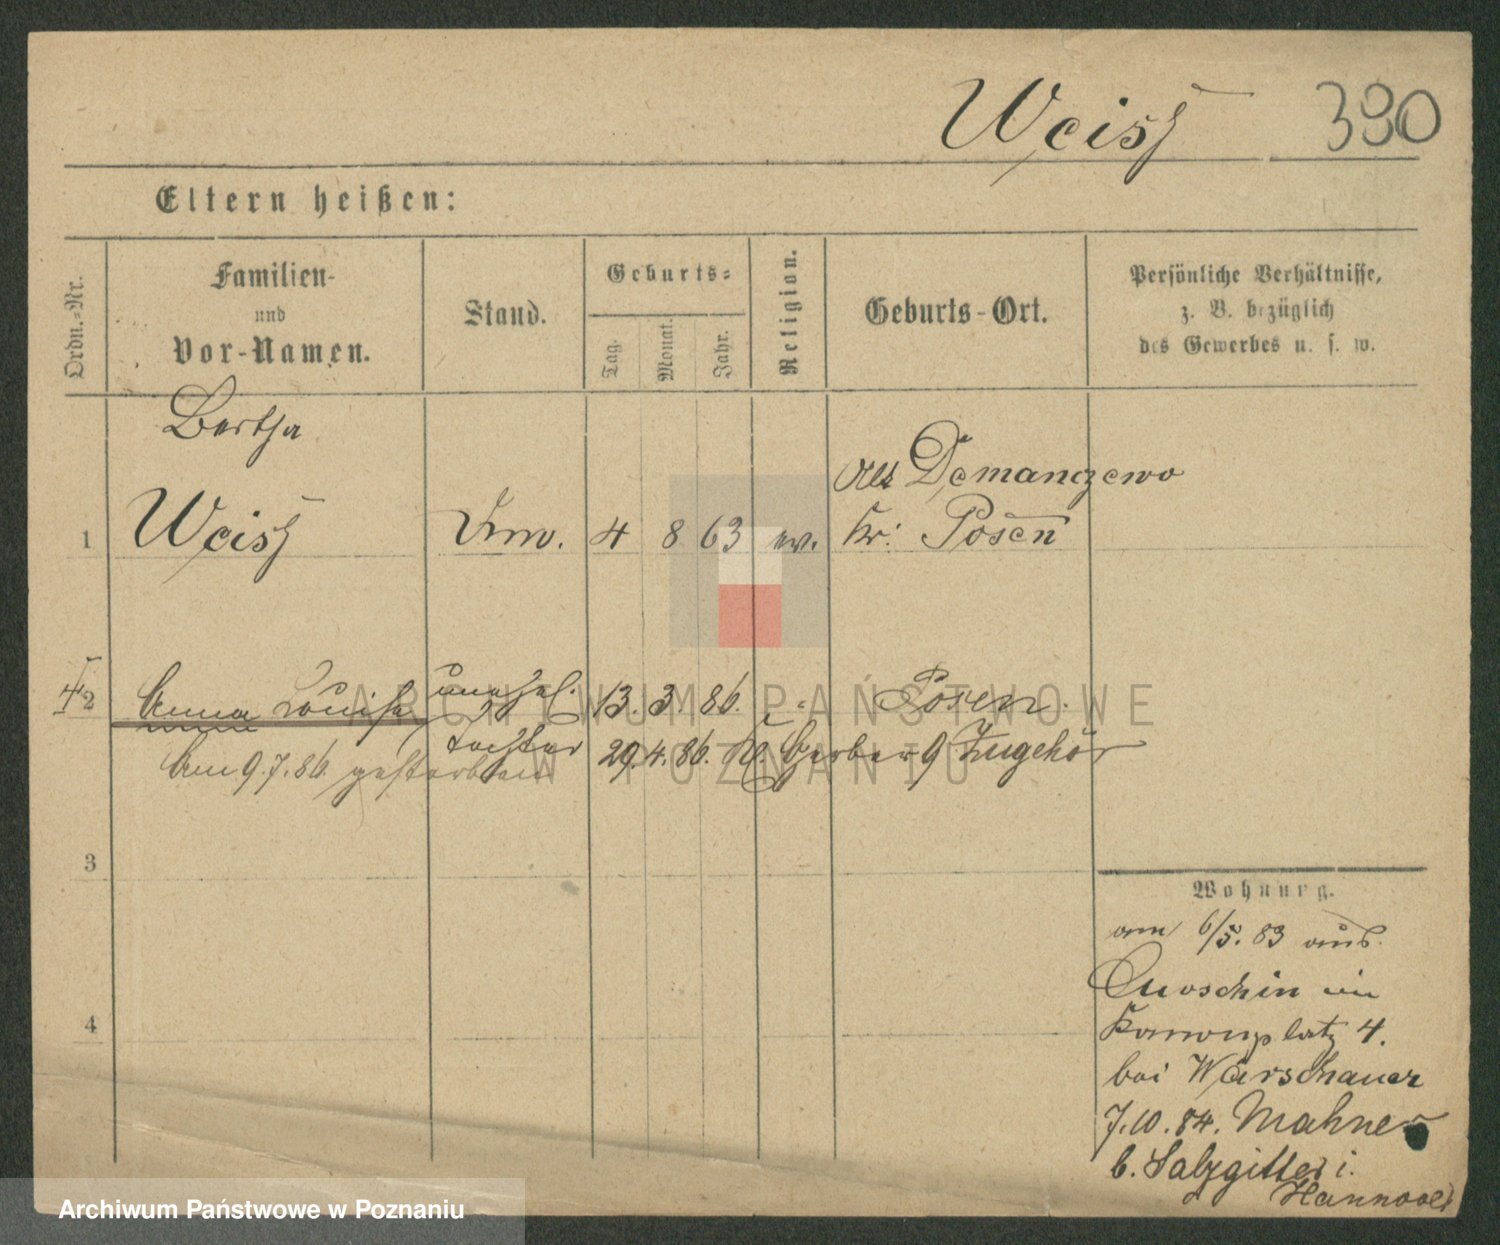 Weiß 390
Eltern heißen:
Ordn.-Nr.
Familien-
und
Vor-Namen.
Stand.
Geburts-
Tag.
Monat.
Jahr.
Religion.
Geburts-Ort.
Persönliche Verhältnisse,
z. B. bezüglich
des Gewerbes u. s. w.
Bertha
Alt Demanczewo
1 Weiß 4 8 63 ev. Kr. Posen
2 Anna Louise unehel. 13. 3. 86. Posen.
Tochter 29. 4. 86. Gerber 9 Zugehör
Am 9.7.86. gestorben
3
4
Wohnung.
am 6/5. 83 aus
in
platz 4.
bei Warschauer
7.10.84. Mahner
b. Salzgitter i.
Hannover
ARCHIWUM PAŃSTWOWE
W POZNANIU
Archiwum Państwowe w Poznaniu